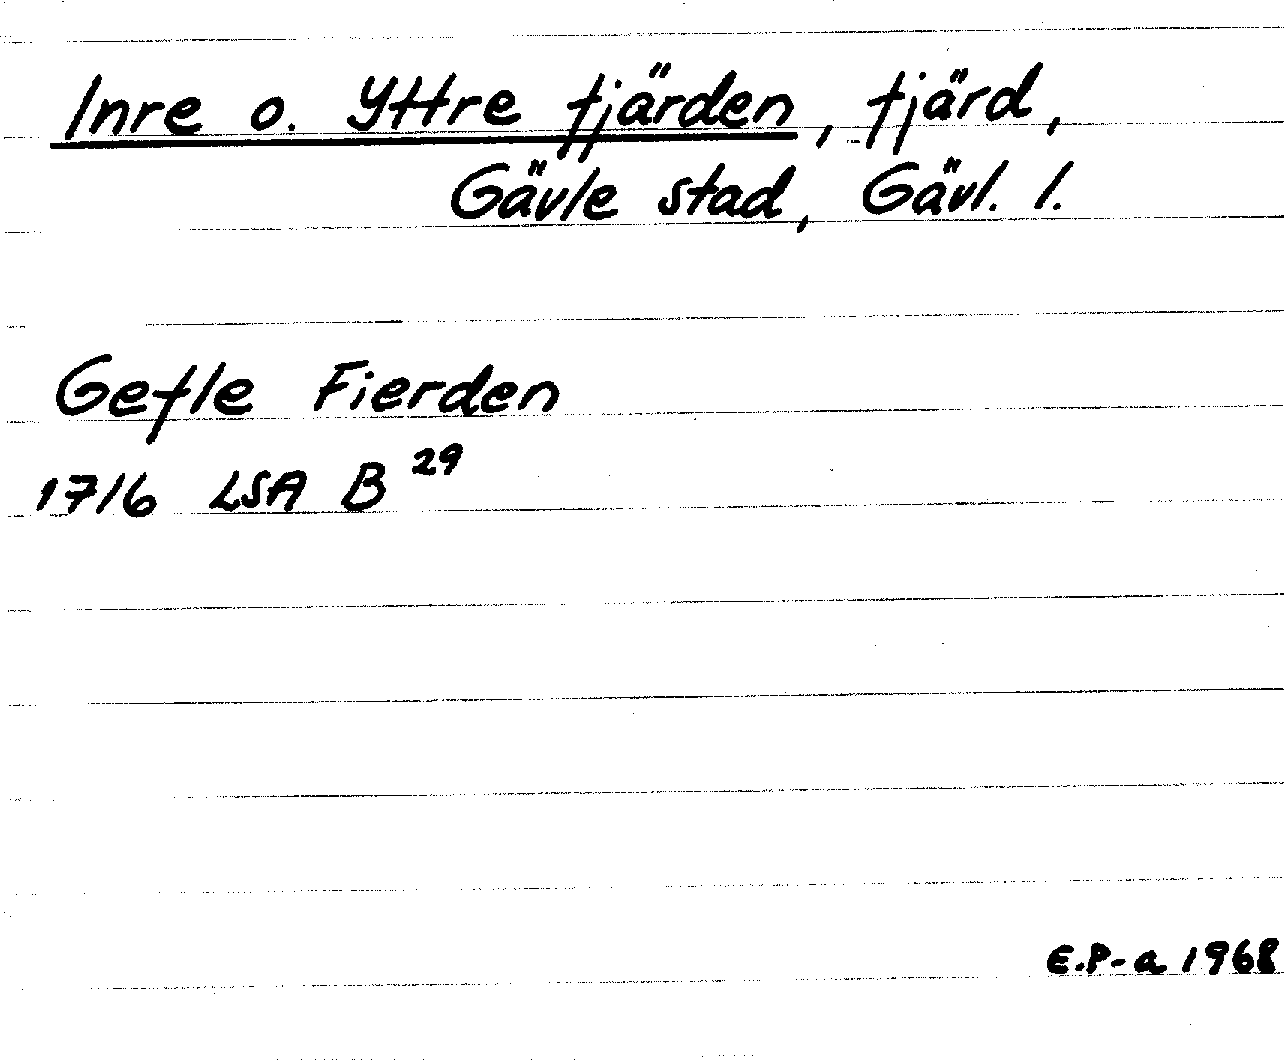 Inre o. Yttre fjärden, fjärd,
Gävle stad, Gävl. l.
Gefle Fierden
1716 LSA B 29
E.P-a 1968